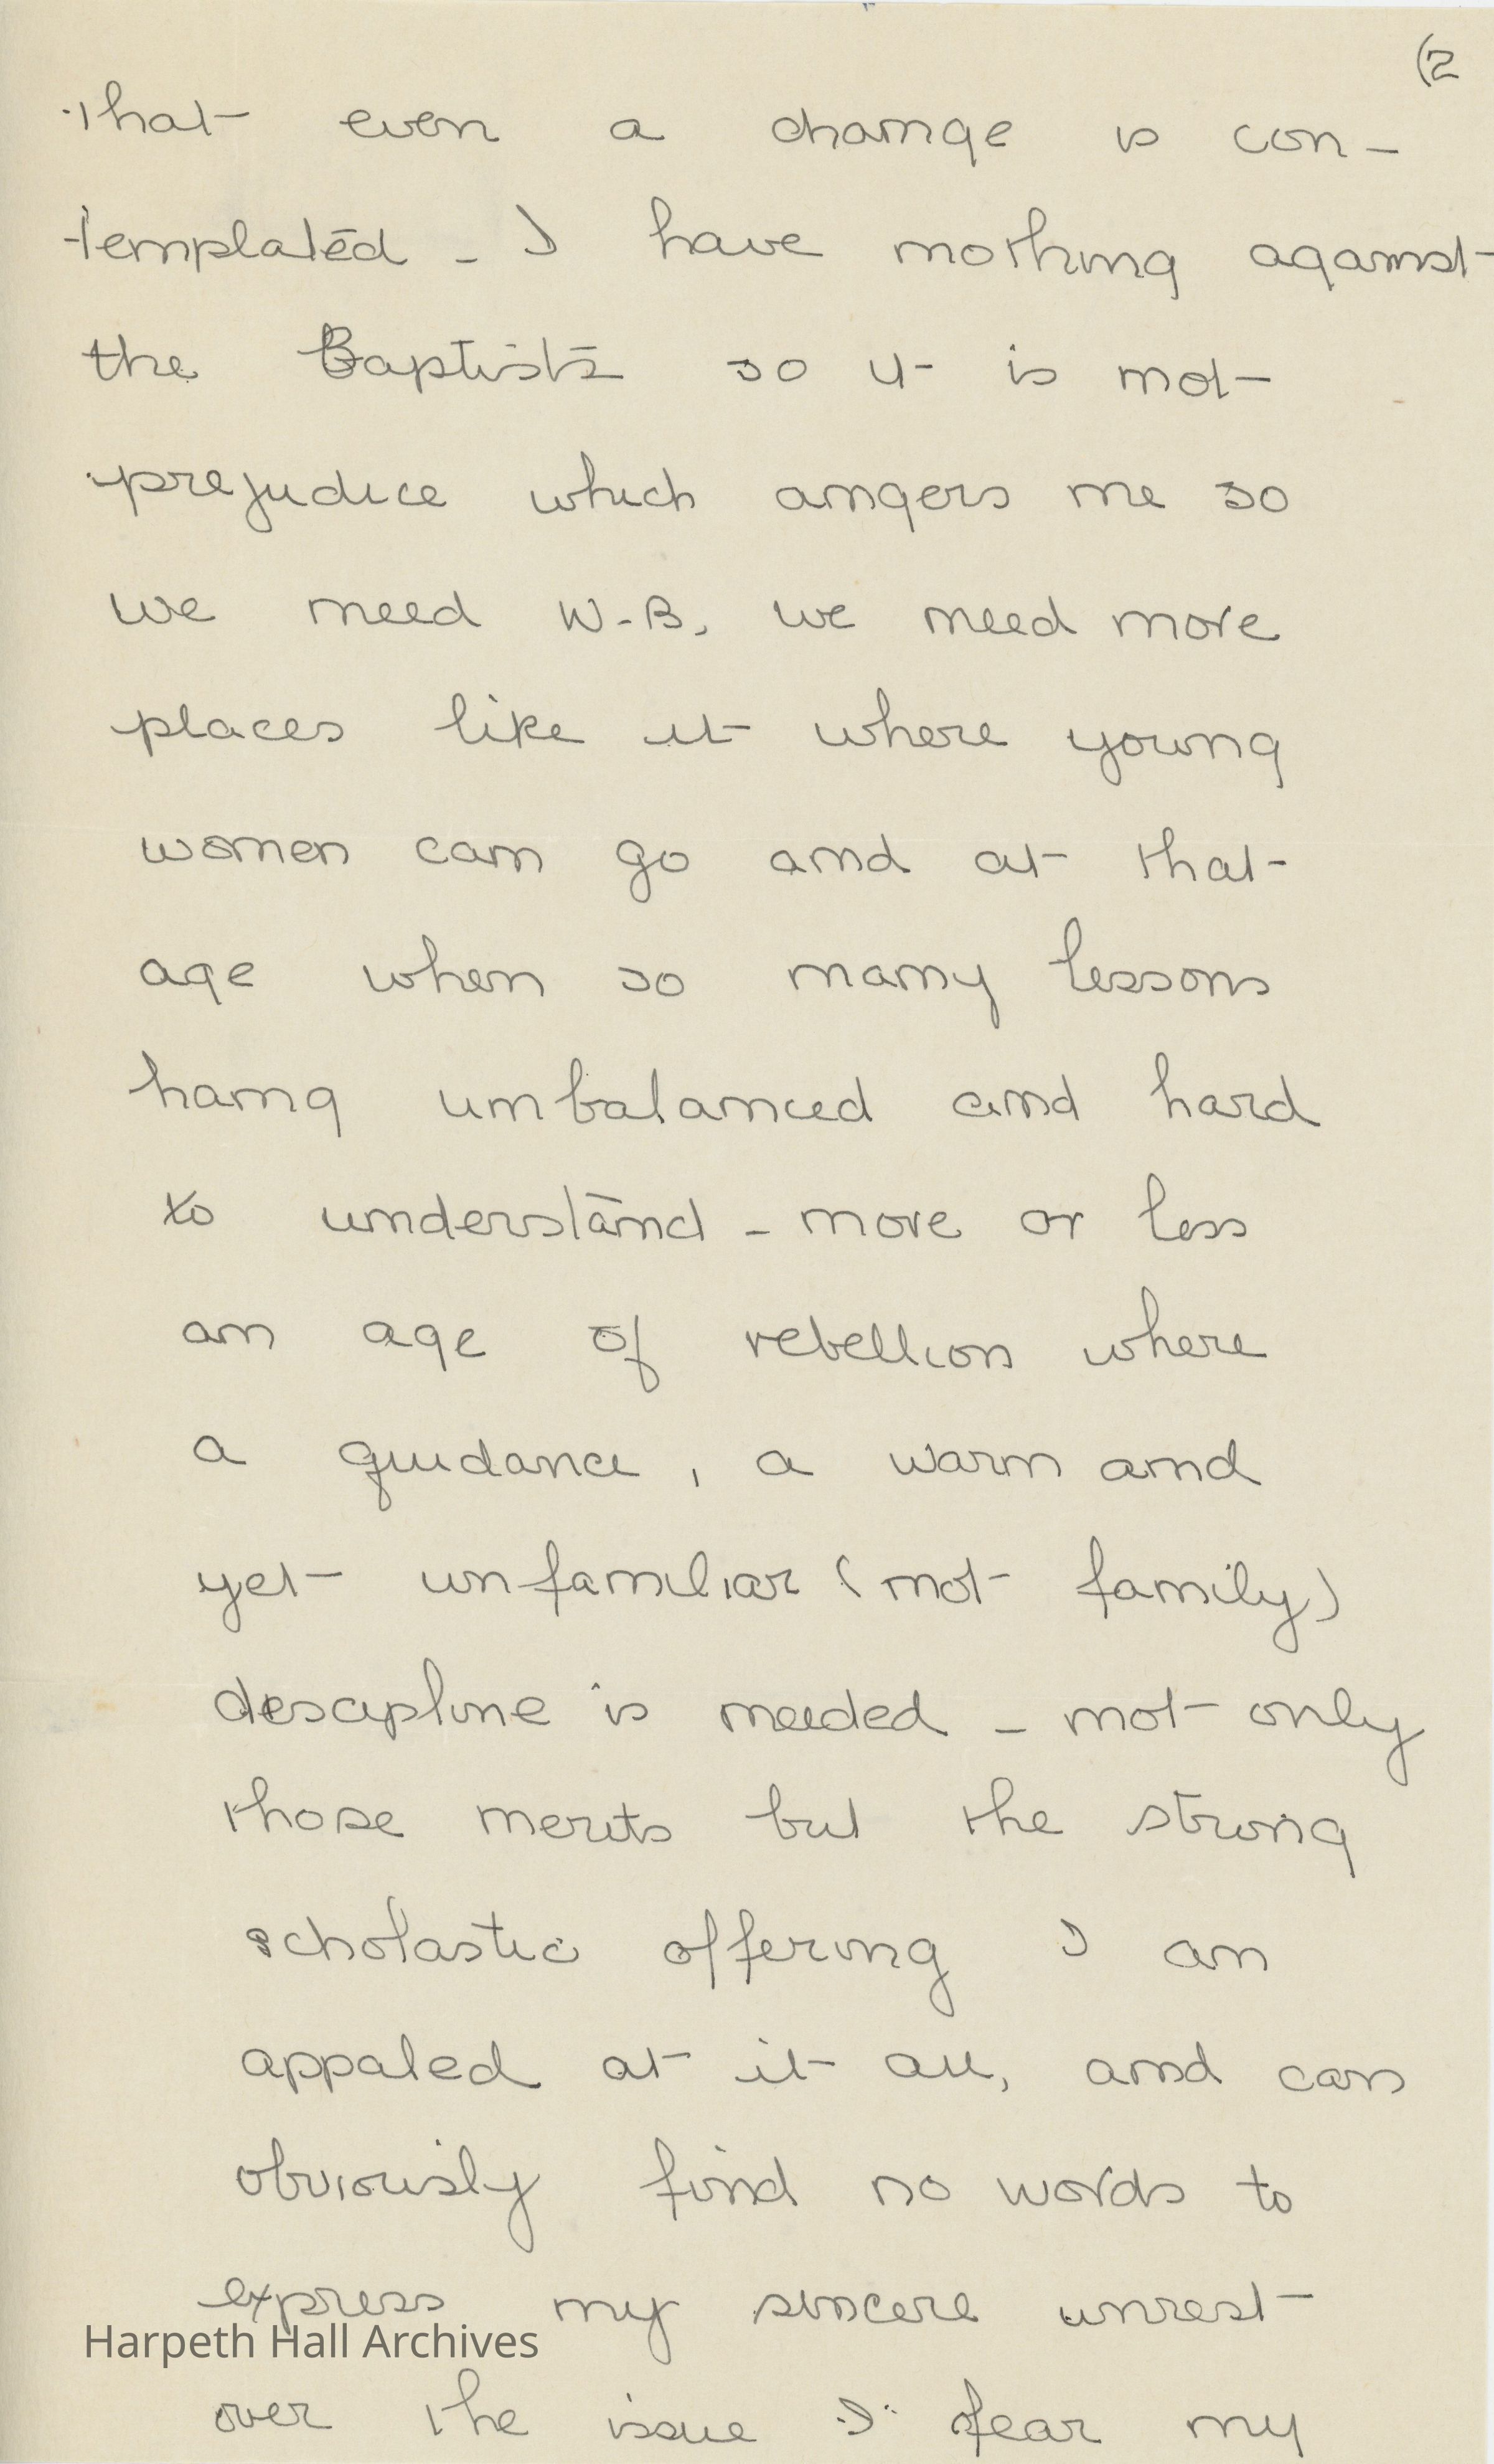 (2
that even a change is con-
templated - I have nothing against
the Baptists so it is not
prejudice which angers me so
we need W-B. we need more
places like it where young
women can go and at that
age when so many lessons
hang unbalanced and hard
to understand - more or less
an age of rebellion where
a guidance, a warm and
yet unfamiliar (not family)
descipline is needed - not only
those merits but the strong
scholastic offering I am
appaled at it all, and can
obviously find no words to
express my sincere unrest
Harpeth Hall Archives
over the issue I fear my